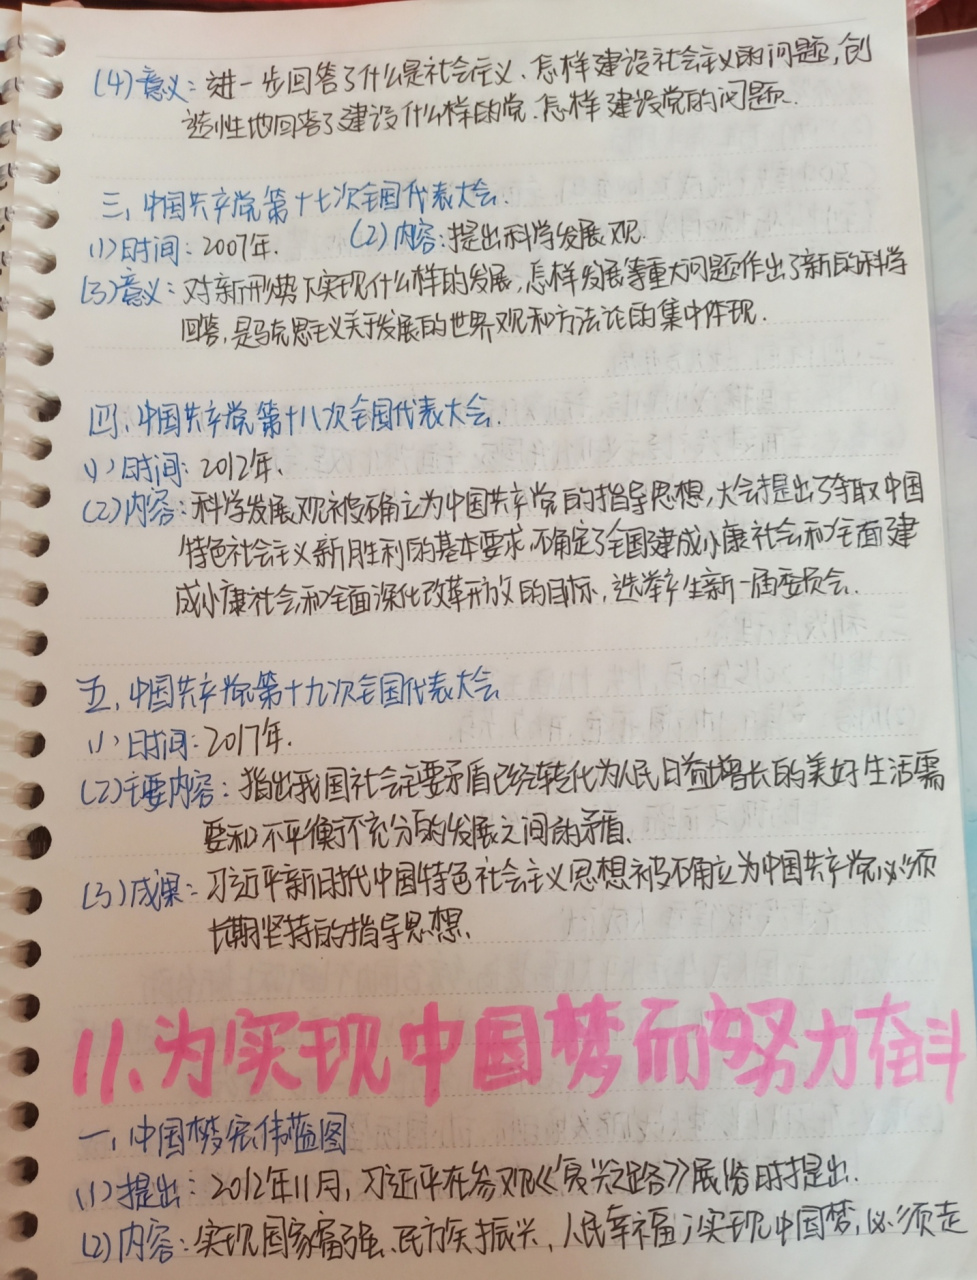 (4)意义：进一步回答了什么是社会主义、怎样建设社会主义的问题，创
造性地回答了建设什么样的党、怎样建设党的问题.
三、中国共产党第十七次全国代表大会.
(1)时间：2007年. (2)内容：提出科学发展观.
(3)意义：对新形势下实现什么样的发展，怎样发展等重大问题作出了新的科学
回答，是马克思主义关于发展的世界观和方法论的集中体现.
四、中国共产党第十八次全国代表大会.
(1)时间：2012年.
(2)内容：科学发展观被确立为中国共产党的指导思想，大会提出了夺取中国
特色社会主义新胜利的基本要求，确定了全国建成小康社会和全面建
成小康社会和全面深化改革开放的目标，选举产生新一届委员会.
五、中国共产党第十九次全国代表大会
(1)时间：2017年.
(2)主要内容：指出我国社会主要矛盾已经转化为人民日益增长的美好生活需
要和不平衡不充分的发展之间的矛盾.
(3)成果：习近平新时代中国特色社会主义思想被确立为中国共产党必须
长期坚持的指导思想.
11、为实现中国梦而努力奋斗
一、中国梦宏伟蓝图
(1)提出：2012年11月，习近平在参观《复兴之路》展览时提出.
(2)内容：实现国家富强、民族振兴、人民幸福；实现中国梦，必须走